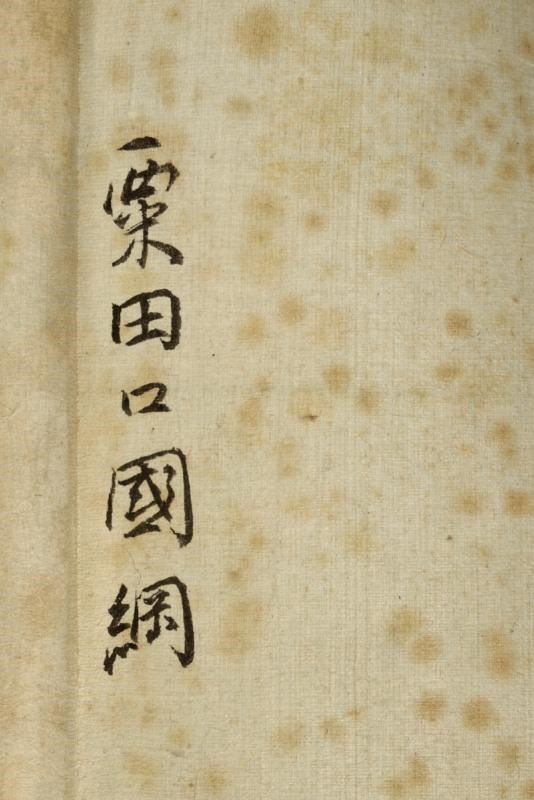 粟田口國綱